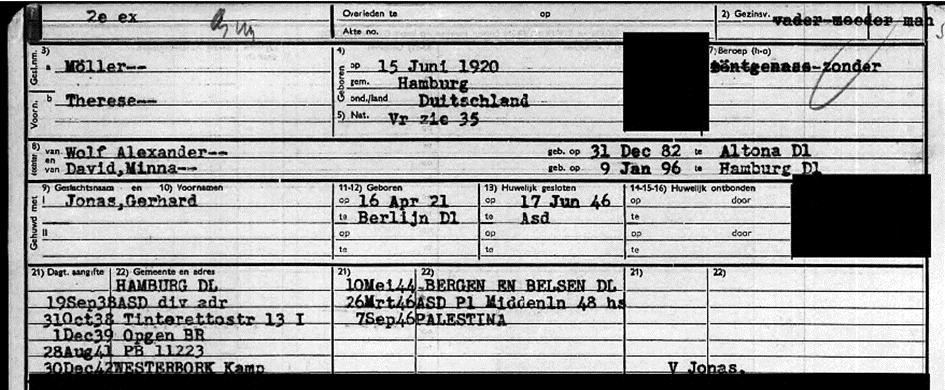 2e ex
Overleden te op
Akte no.
2) Gezinsv. vader moeder man
3) Gesl.nm. a Möller--
Voorn. b Therese--
4) Geboren op 15 Juni 1920
gem. Hamburg
ond./land Duitschland
5) Nat. Vr zie 35
7) Beroep (h-o)
röntgenass-zonder
8) van Wolf Alexander-- geb. op 31 Dec 82 te Altona Dl
en
van David,Minna-- geb. op 9 Jan 96 te Hamburg Dl
Gehuwd met
9) Geslachtsnaam en 10) Voornamen
I Jonas,Gerhard
II
11-12) Geboren
op 16 Apr 21
te Berlijn Dl
op
te
13) Huwelijk gesloten
op 17 Jun 46
te Asd
op
te
14-15-16) Huwelijk ontbonden
op door
te
op door
te
21) Dagt. aangifte 22) Gemeente en adres
HAMBURG DL
19Sep38 ASD div adr
31Oct38 Tintorettostr 13 I
1Dec39 Opgen BR
28Aug41 PB 11223
30Dec42 WESTERBORK Kamp
21) 22)
10Mei44 BERGEN EN BELSEN DL
26Mrt46 ASD Pl Middenln 48 hs
7Sep46 PALESTINA
21) 22)
V Jonas.